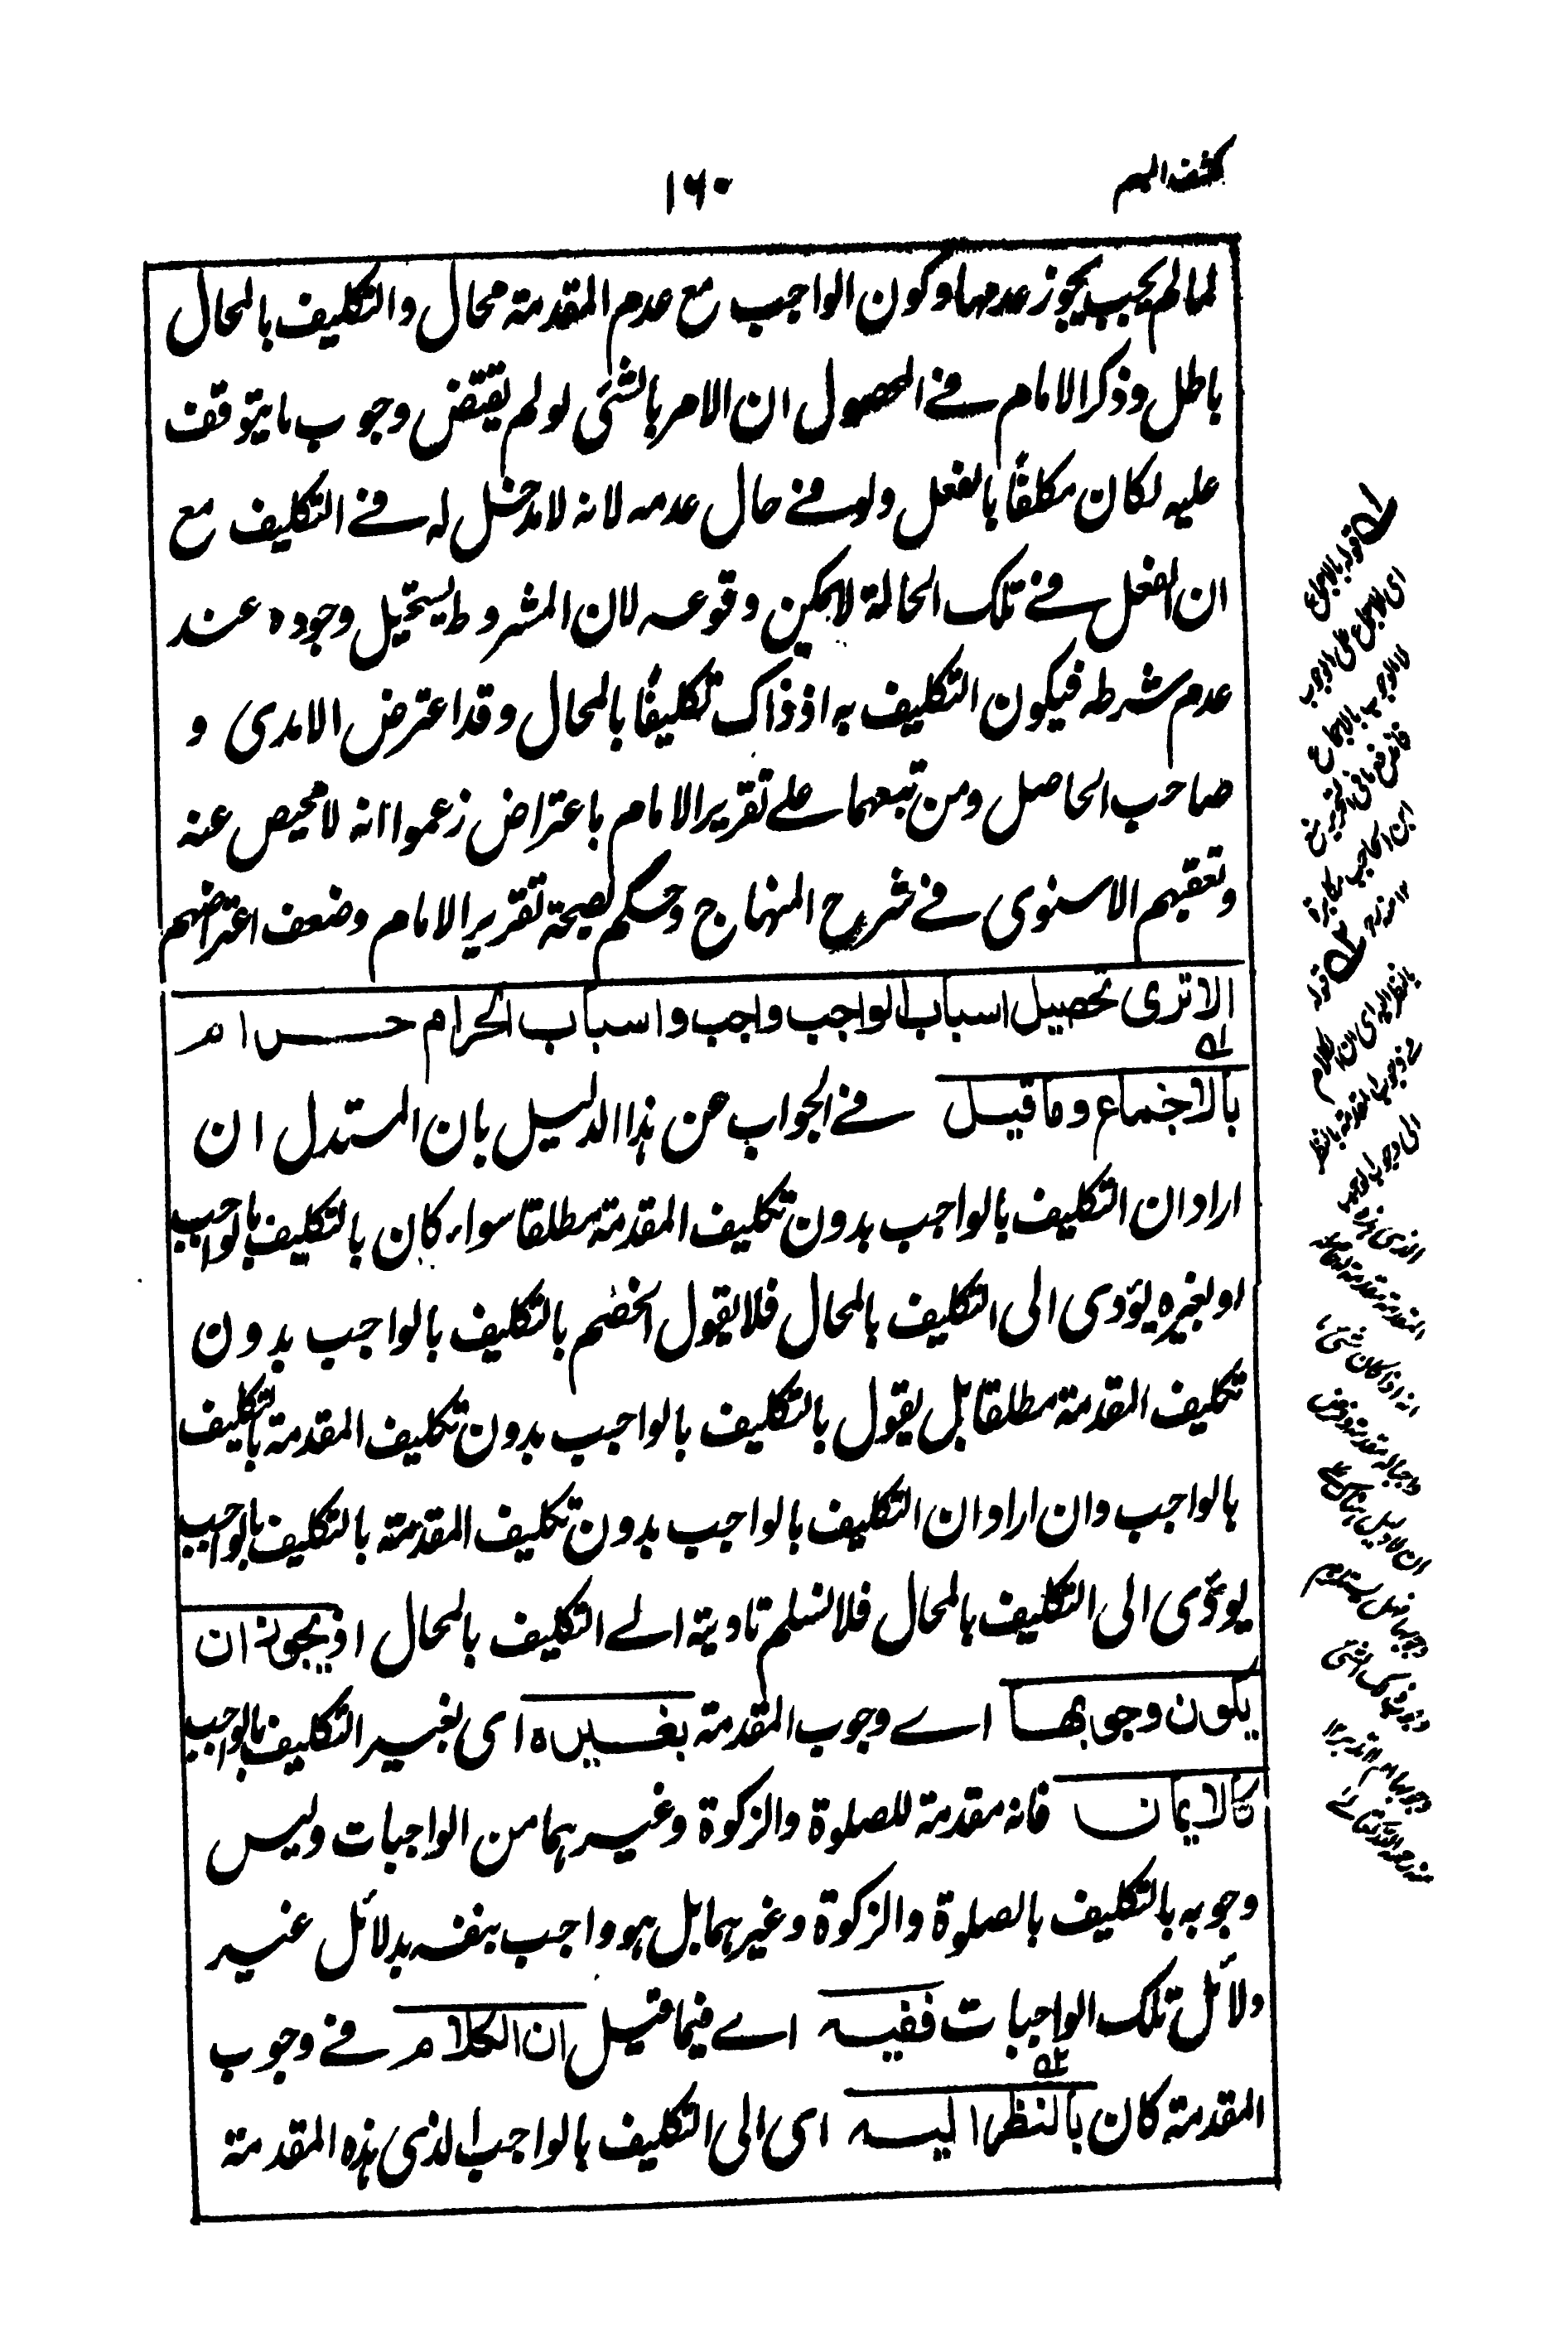 كشف المبهم
١٦٠
لما لم يجب يجوز عدمها وكون الواجب مع عدم المقدمة محال والتكليف بالمحال
باطل وذكر الامام في المحصول ان الامر بالشئ لو لم يقتض وجوب ما يتوقف
عليه لكان مكلفًا بالفعل ولو في حال عدمه لانه لا مدخل له في التكليف مع
ان الفعل في تلك الحالة لا يمكن وقوعه لان المشروط يستحيل وجوده عند
عدم شرطه فيكون التكليف به اذ ذاك تكليفًا بالمحال وقد اعترض الامدى و
صاحب الحاصل ومن تبعهما على تقرير الامام باعتراض زعموا انه لا محيص عنه
وتعقبهم الاسنوى في شرح المنهاج وحكم بصحة تقرير الامام وضعف اعتراضهم
الا ترى تحصيل اسباب الواجب واجب واسباب الحرام حرام
بالاجماع وما قيل في الجواب عن هذا الدليل بان المستدل ان
اراد ان التكليف بالواجب بدون تكليف المقدمة مطلقا سواء كان بالتكليف بالواجب
او بغيره يؤدى الى التكليف بالمحال فلا يقول الخصم بالتكليف بالواجب بدون
تكليف المقدمة مطلقا بل يقول بالتكليف بالواجب بدون تكليف المقدمة بالتكليف
بالواجب وان اراد ان التكليف بالواجب بدون تكليف المقدمة بالتكليف بالواجب
يؤدى الى التكليف بالمحال فلا نسلم تاديته الى التكليف بالمحال اذ يجوز ان
يكون وجوبها اے وجوب المقدمة بغيره اى بغير التكليف بالواجب
كالايمان فانه مقدمة للصلوة والزكوة وغيرهما من الواجبات وليس
وجوبه بالتكليف بالصلوة والزكوة وغيرهما بل هو واجب بنفسه بدلائل غير
دلائل تلك الواجبات ففيه اے فيما قيل ان الكلام في وجوب
المقدمة كان بالنظر اليه اى الى التكليف بالواجب الذى هذه المقدمة
قوله بالاجماع
اى الاجماع على الوجوب
ابن الحاجب مكابرة
قوله
بالنظر اليه اى ان الكلام
فى وجوب المقدمة بالنظر
الى وجوب الواجب
الذى هذه